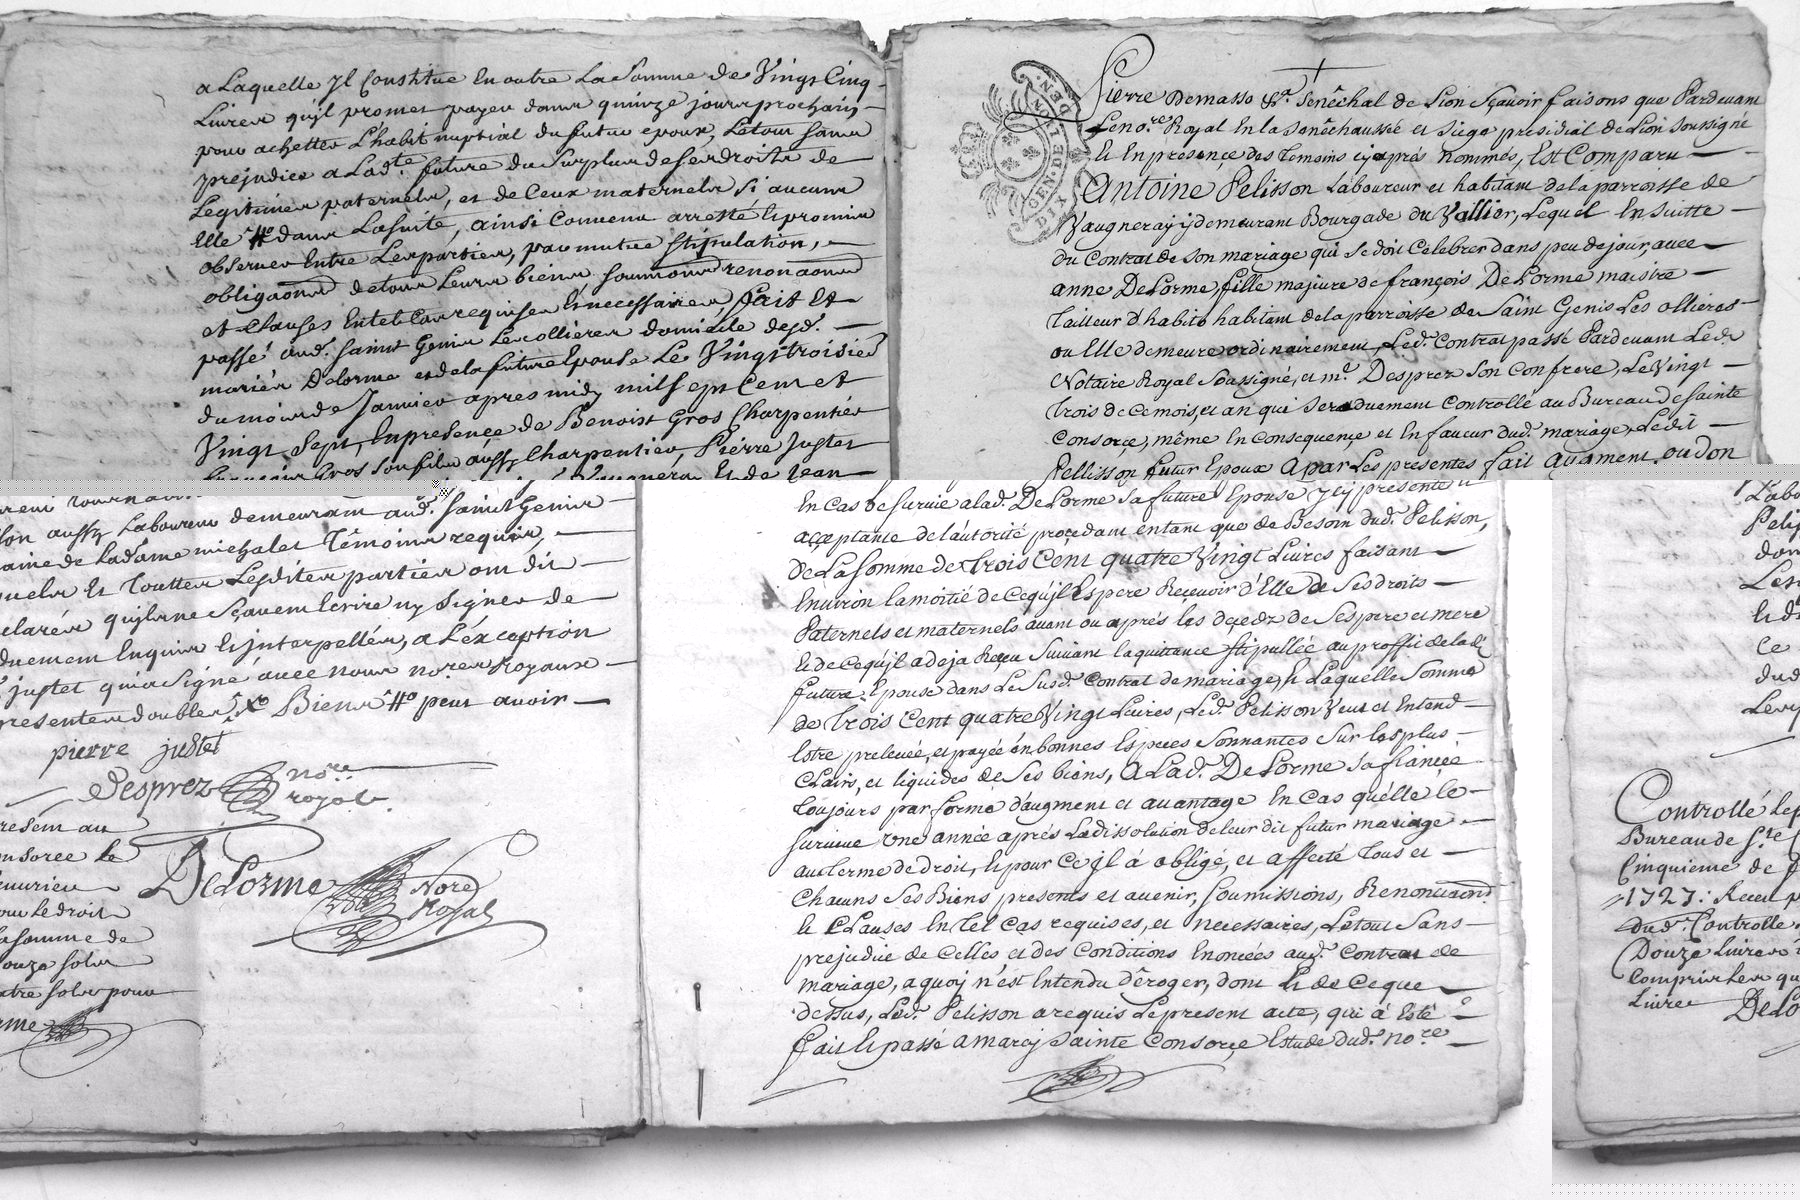 a Laquelle jl Constitue En outre La Somme de Vingt Cinq
Livres qujl promet payer dans quinze jours prochain,
pour achetter L'habit nuptial du futur epoux, Le tout sans
prejudice a Lad.te future du Surplus de Ses droits de
Legitimes paternels, et de Ceux maternels Si aucuns
Elle dans La Suite, ainsi Convenu arresté Et promis
observer Entre Les parties, par mutue Stipulation,
obligaons de tous Leurs biens soumions renonaons
et Clauses En tel Cas requises Et necessaires, fait Et
passé aud. Saint Genis Les ollieres domicile desd.
mariés Delorme et de la future Epouse Le Vingt troisie
du mois de Janvier apres midy mil sept Cent et
Vingt Sept, En presence de Benoist Gros Charpentier
François Gros Son fils aussy Charpentier, Pierre Justet
Pierre Demasso &r. Senêchal de Lion Sçavoir faisons que Pardevant
Le no.re Royal En la Senêchaussée et Siege presidial de Lion Soussigné
Et En presençe des Temoins cy aprés nommés, Est Comparu
Antoine Pelisson Laboureur et habitant de la parroisse de
Vaugneray y demeurant Bourgade du Vallier, Lequel En Suitte
du Contrat de Son mariage qui Se doit Celebrer dans peu de jour, avec
anne DeLorme, fille majeure de françois DeLorme maistre
Tailleur d'habits habitant de la parroisse de Saint Genis Les ollieres
ou Elle demeure ordinairement, Led. Contrat passé Pardevant Led.
Notaire Royal Soussigné, et m.e Desprez Son Confrere, Le Vingt
trois de Ce mois, et an qui Sera duement Controllé au Bureau de Sainte
Consorçe, même En Consequençe et En faveur dud. mariage, Ledit
Pellisson futur Epoux A par Les presentes fait Augment, ou don
lon aussy Laboureur demeurant aud. Saint Genis
de La dame michalet Témoins requis,
Et Toutes Lesdites parties ont dit
qujls ne Sçavent Ecrire ny Signer de
duement Enquis Et jnterpellés, a L'exception
justet qui a Signé avec nous no.res Royaux
presentes doubles, Biens peut avoir
pierre justet
Desprez no.re
royal.
DeLorme Nore
Royal
present au
Consorce Le
Le droit
La Somme de
Douze Sols
quatre Sols pour
En Cas de Survie a lad. DeLorme Sa future Epouse jcy presente
acçeptante de l'autorité proçedant entant que de Besoin dud. Pelisson,
De La Somme de Trois Cent quatre Vingt Livres faisant
Environ la moitié de Ce qujl Espere Reçevoir d'Elle de Ses droits
Paternels et maternels avant ou aprés les deçedz de Ses pere et mere
Et de Ce qujl a deja Reçeu Suivant la quittance Stipullée au proffit de lad.
future Epouse dans Le Susd. Contrat de mariage, Et Laquelle Somme
de Trois Cent quatre Vingt Livres, Led. Pelisson Veut et Entend
Estre prelevée, et payée en bonnes Especes Sonnantes Sur les plus
Clairs, et liquides de Ses biens, A Lad. DeLorme Sa fiancée
toujours par forme d'augment et avantage En Cas qu'elle le
Survive Une année aprés La dissolution de leur dit futur mariage
au terme de droit, Et pour Ce jl à obligé, et affecté Tous et
Chacuns Ses Biens presents et avenir, Soumissions, Renonciaons
Et Clauses En Tel Cas requises, et necessaires, Le tout Sans
prejudice de Celles et des Conditions Enoncées aud. Contrat de
mariage, a quoy n'est Entendu dêroger, dont Et de Ce que
dessus, Led. Pelisson a requis Le present acte, qui à Esté
fait Et passé a Marcy Sainte Consorçe Estude dud. no.re
Controllé le
Bureau de S.te
Cinquieme de
1727: Receu
dud. Controlle
Douze Livres
Compris les
Livre